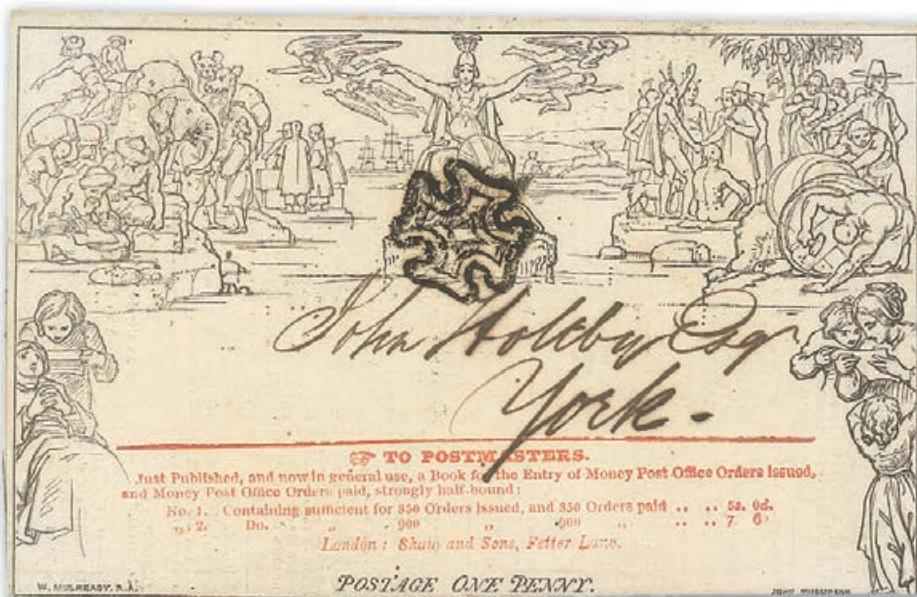 John Holtby Esq
York.
☞ TO POSTMASTERS.
Just Published, and now in general use, a Book for the Entry of Money Post Office Orders issued,
and Money Post Office Orders paid, strongly half-bound:
No. 1. Containing sufficient for 350 Orders issued, and 350 Orders paid .. .. 5s. 0d.
„ 2. Do. „ 900 „ 900 „ .. .. 7 6
London: Shaw and Sons, Fetter Lane.
POSTAGE ONE PENNY.
W. MULREADY. R.A.
JOHN